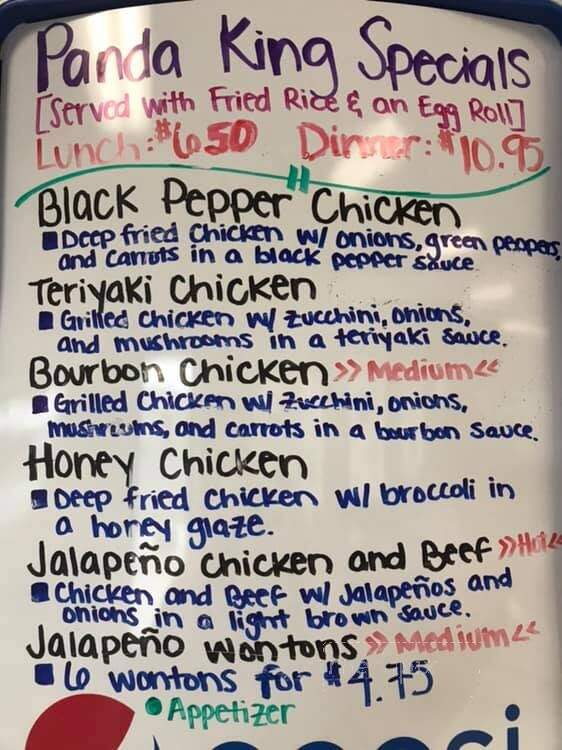 Panda King Specials
[Served with Fried Rice & an Egg Roll]
Lunch: $6.50 Dinner: $10.95
Black Pepper Chicken
Deep fried Chicken w/ onions, green peppers,
and carrots in a black pepper sauce
Teriyaki Chicken
Grilled chicken w/ zucchini, onions,
and mushrooms in a teriyaki sauce.
Bourbon Chicken >> Medium <<
Grilled Chicken w/ zucchini, onions,
mushrooms, and carrots in a bourbon sauce.
Honey Chicken
Deep fried chicken w/ broccoli in
a honey glaze.
Jalapeño Chicken and Beef >> Hot <<
Chicken and Beef w/ Jalapeños and
onions in a light brown sauce.
Jalapeño Wontons >> Medium <<
6 wontons for $4.75
• Appetizer
pepsi